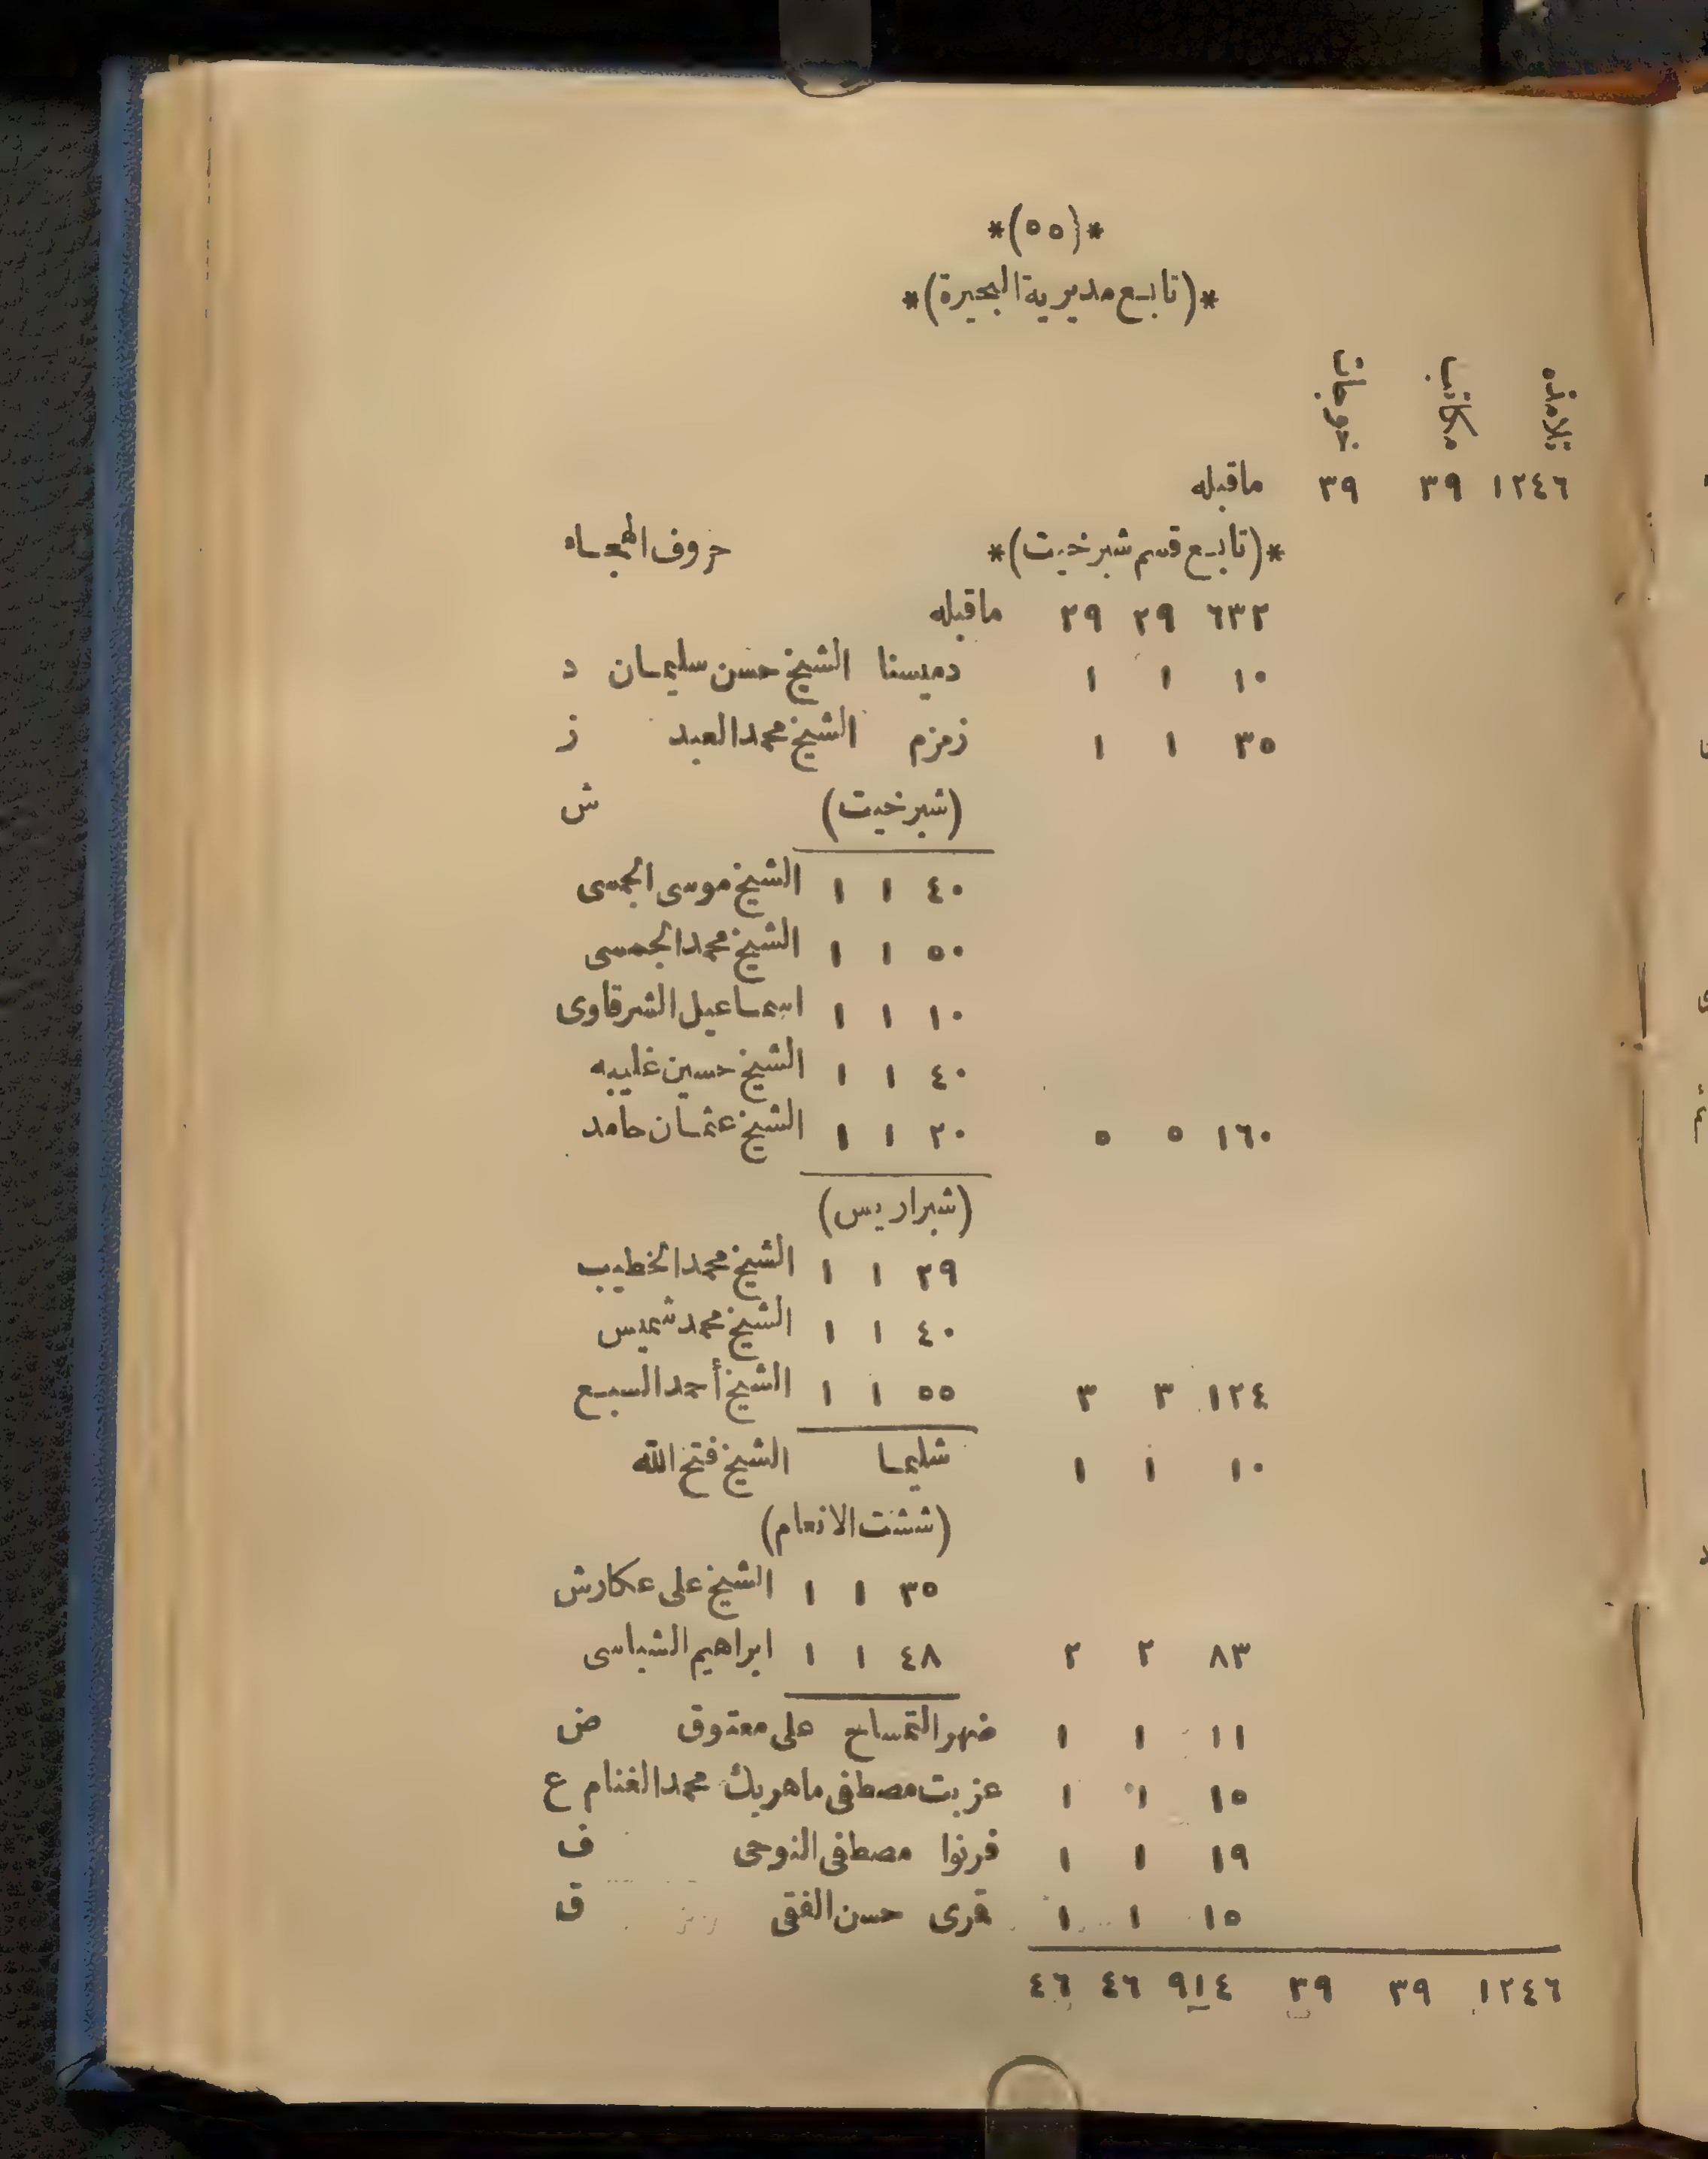 *(٥٥)*
*(تابع مديرية البحيرة)*
تلامذه مكاتب خوجات
١٢٤٦ ٣٩ ٣٩ ماقبله
*(تابع قسم شبرخيت)* حروف الهجاه
٦٣٢ ٢٩ ٢٩ ماقبله
١٠ ١ ١ دميسنا الشيخ حسن سليمان د
٣٥ ١ ١ زمزم الشيخ محمد العبد ز
(شبرخيت) ش
٤٠ ١ ١ الشيخ موسى الجمسى
٥٠ ١ ١ الشيخ محمد الجمسى
١٠ ١ ١ اسماعيل الشرقاوى
٤٠ ١ ١ الشيخ حسين غليبه
١٦٠ ٥ ٥ ٢٠ ١ ١ الشيخ عثمان حامد
(شبراريس)
٢٩ ١ ١ الشيخ محمد الخطيب
٤٠ ١ ١ الشيخ محمد شميس
١٢٤ ٣ ٣ ٥٥ ١ ١ الشيخ أحمد السبع
١٠ ١ ١ شليما الشيخ فتح الله
(ششت الانعام)
٣٥ ١ ١ الشيخ على عكارش
٨٣ ٢ ٢ ٤٨ ١ ١ ابراهيم الشباسى
١١ ١ ١ ضهر التمساح على معتوق ض
١٥ ١ ١ عزبت مصطفى ماهر بك محمد الغنام ع
١٩ ١ ١ فرنوا مصطفى النوحى ف
١٥ ١ ١ قرى حسن الفقى ق
١٢٤٦ ٣٩ ٣٩ ٩١٤ ٤٦ ٤٦